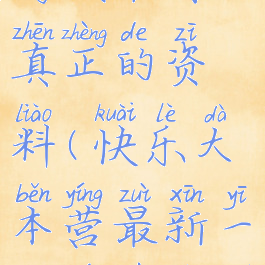 zhēn zhèng de zī
真正的资
liào kuài lè dà
料(快乐大
běn yíng zuì xīn yī
本营最新一